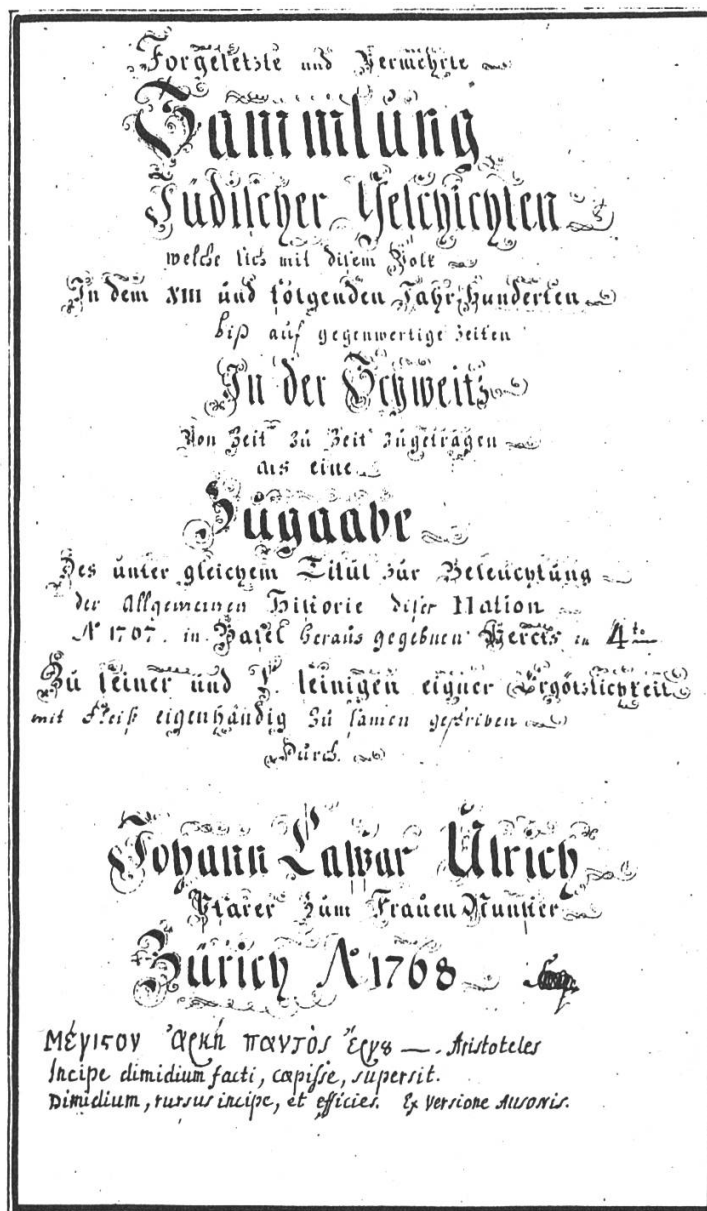 Forgesetzte und Vermehrte
Sammlung
Jüdischer Geschichten
welche sich mit disem Volk
In dem XIII und folgenden Jahr-Hunderten
biß auf gegenwertige Zeiten
In der Schweitz
Von Zeit zü Zeit zügetragen
als eine
Zügaabe
Des unter gleichem Titül zür Beleüchtüng
der Allgemeinen Historie diser Nation
Aº 1767. in Basel heraus gegebnen Wercks in 4to
Zü seiner und der seinigen eigner Ergötzlichkeit
mit Fleiß eigenhändig zü samen geschriben
Dürch.
Johann Caspar Ülrich
Pfarer Züm Frauen Münster
Zürich Aº 1768
Μέγιςον ἀρκή παντὸς ἔργȣ —. Aristoteles
Incipe dimidium facti, cœpisse, supersit.
Dimidium, rursus incipe, et efficies. Ex Versione Ausonis.